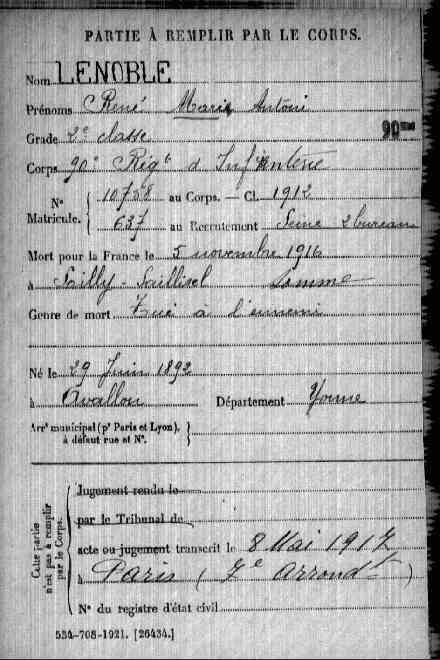 PARTIE À REMPLIR PAR LE CORPS.
Nom LENOBLE
Prénoms René Marie Antoni
Grade 2e classe 90ème
Corps 90e Régt d'Infanterie
N° 10758 au Corps. — Cl. 1912
Matricule. 637 au Recrutement Seine 2 bureau
Mort pour la France le 5 novembre 1916
à Sailly-Saillisel Somme
Genre de mort Tué à l'ennemi
Né le 29 Juin 1892
à Avallon Département Yonne
Arrt municipal (pr Paris et Lyon),
à défaut rue et N°.
Cette partie n'est pas à remplir par le Corps.
Jugement rendu le
par le Tribunal de
acte ou jugement transcrit le 8 Mai 1917
à Paris (7e Arrondt)
N° du registre d'état civil
534-708-1921. [26434.]